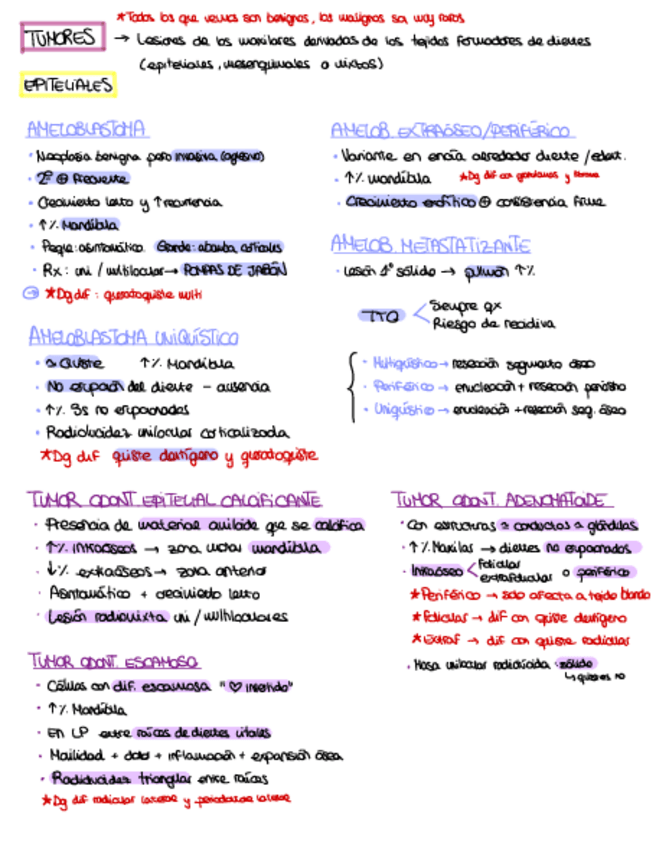 *Todos los que vemos son benignos, los malignos son muy raros
TUMORES → Lesiones de los maxilares derivadas de los tejidos formadores de dientes
(epiteliales, mesenquimales o mixtos)
EPITELIALES
AMELOBLASTOMA
· Neoplasia benigna pero invasiva (agresivo)
· 2º ⊕ frecuente
· Crecimiento lento y ↑recurrencia
· ↑% Mandíbula
· Peque: asintomático. Grande: abomba corticales
· Rx: uni / multilocular → POMPAS DE JABÓN
*Dg dif: queratoquiste multi
AMELOBLASTOMA UNIQUÍSTICO
· ≈ Quiste ↑% Mandíbula
· No erupción del diente - ausencia
· ↑% 3s no erupcionados
· Radiolucidez unilocular corticalizada
*Dg dif quiste dentígero y queratoquiste
AMELOB. EXTRAÓSEO/PERIFÉRICO
· Variante en encía alrededor diente /edent.
· ↑% mandíbula *Dg dif con granulomas y fibroma
· Crecimiento exofítico ⊕ consistencia firme
AMELOB. METASTATIZANTE
· Lesión 1º sólido → pulmón ↑%
TTO
Siempre qx
Riesgo de recidiva
· Multiquístico → resección segmento óseo
· Periférico → enucleación + resección periostio
· Uniquístico → enucleación + resección seg. óseo
TUMOR ODONT. EPITELIAL CALCIFICANTE
· Presencia de material amiloide que se calcifica
· ↑% intraóseos → zona molar mandíbula
· ↓% extraóseos → zona anterior
· Asintomático + crecimiento lento
· Lesión radiomixta uni / multiloculares
TUMOR ODONT. ESCAMOSO
· Células con dif. escamosa "♡ invertido"
· ↑% Mandíbula
· En LP entre raíces de dientes vitales
· Movilidad + dolor + inflamación + expansión ósea
· Radiolucidez triangular entre raíces
*Dg dif radicular lateral y periodontal lateral
TUMOR ODONT. ADENOMATOIDE
· Con estructuras ≈ conductos ≈ glándulas
· ↑% Maxilas → dientes no erupcionados
· Intraóseo < folicular
extrafolicular o periférico
*Periférico → solo afecta a tejido blando
*Folicular → dif con quiste dentígero
*Extraf → dif con quiste radicular
· Masa unilocular radiolúcida sólido
↳ quistes no